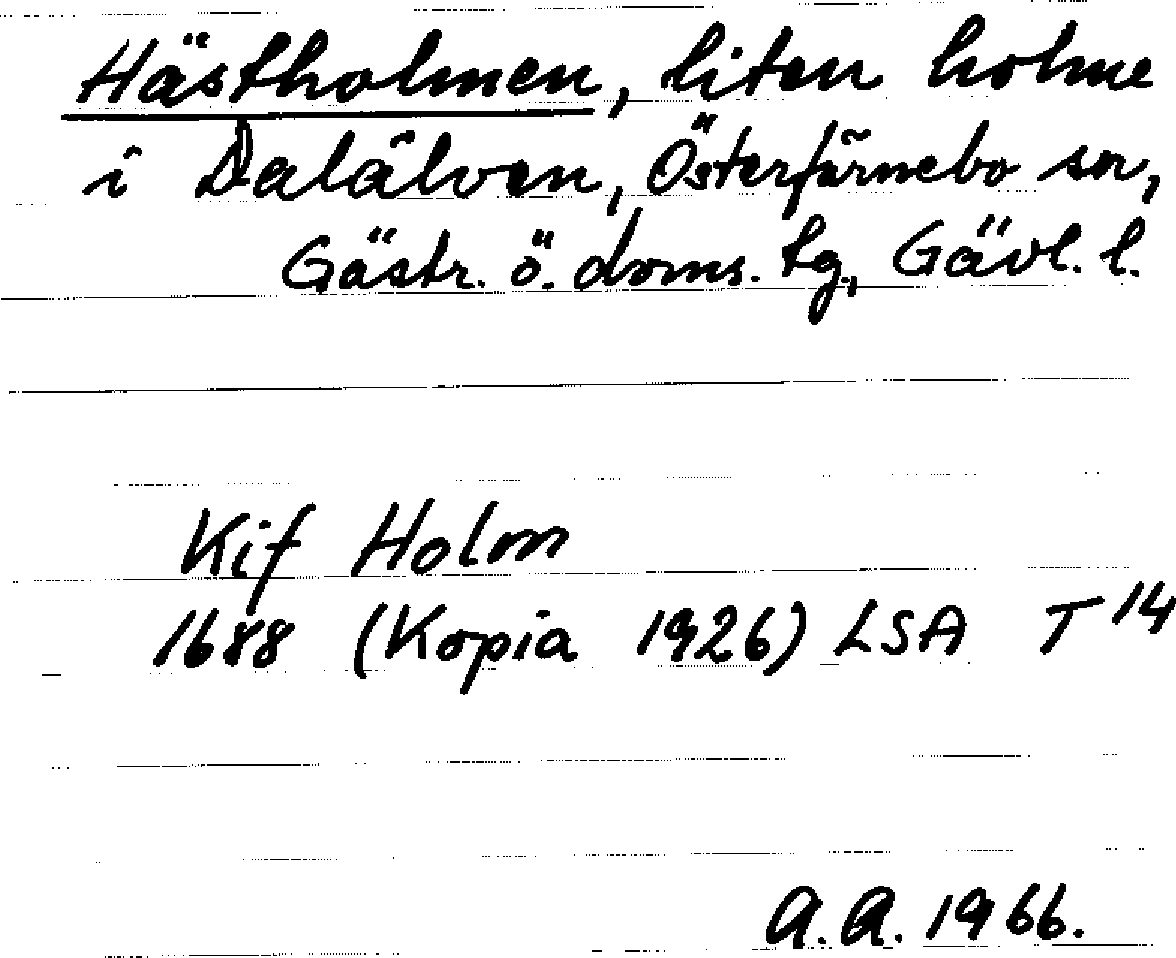 Hästholmen, liten holme
i Dalälven, Österfärnebo sn,
Gästr. ö. doms. tg., Gävl. l.
Kif Holm
1688 (Kopia 1926) LSA T 14
A.A. 1966.